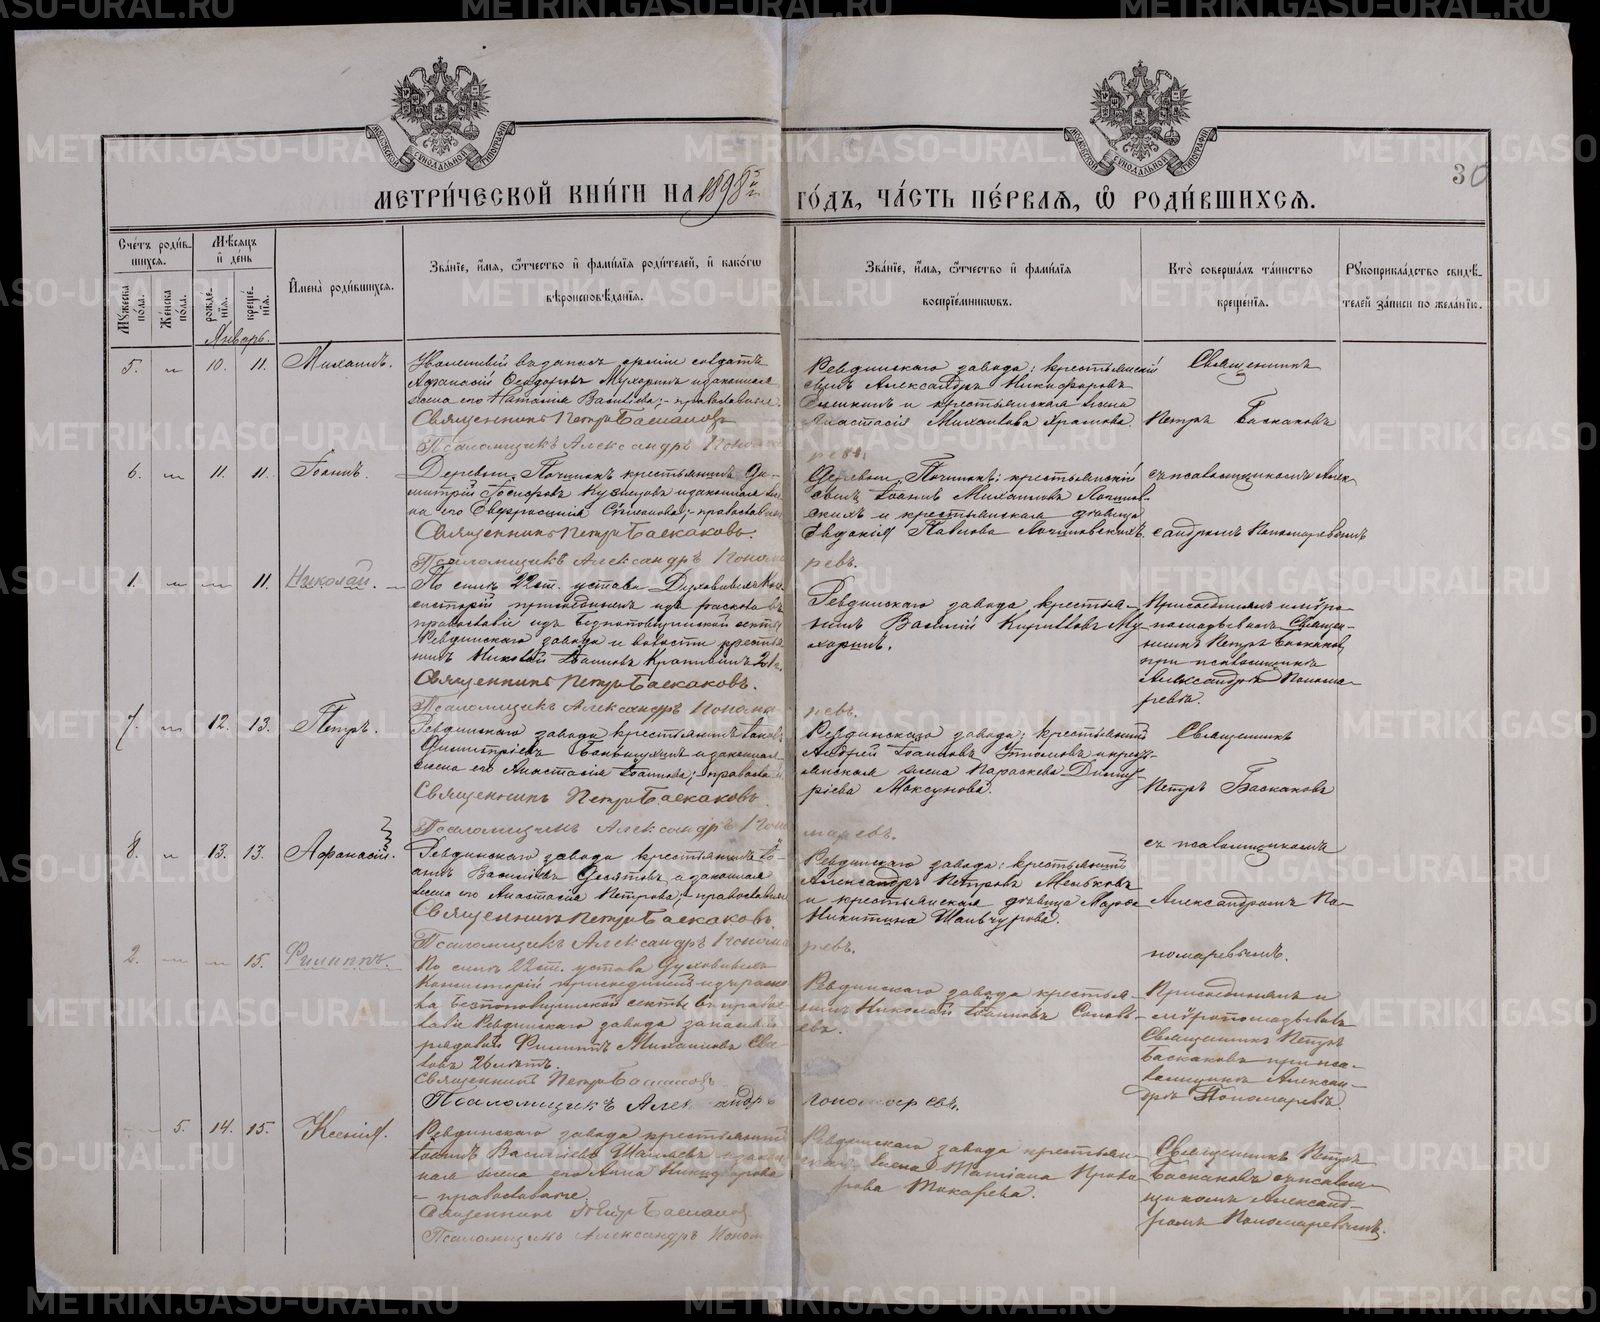 METRIKI.GASO-URAL.RU
30
МЕТРИ́ЧЕСКОЙ КНИ́ГИ НА 1898й ГО́ДЪ, ЧА́СТЬ ПЕ́РВАЯ, Ѽ РОДИ́ВШИХСЯ.
Сче́тъ роди́в-
шихся.
Мѣ́сяцъ
и҆ де́нь
И҆мена̀ роди́вшихся.
Зва́нїе, и҆́мя, ѻ҆́тчество и҆ фами́лїя роди́телей, и҆ како́гѡ
вѣроисповѣ́данїя.
Зва́нїе, и҆́мя, ѻ҆́тчество и҆ фами́лїя
воспрїе́мниковъ.
Кто̀ соверша́лъ та́инство
креще́нїя.
Рꙋкоприкла́дство свидѣ́-
телей за́писи по жела́нїю.
Мꙋ́жеска
по́ла.
Же́нска
по́ла.
рожде́-
нїя.
креще́-
нїя.
Январь.
5. 10. 11. Михаилъ.
Уволенный въ запасъ арміи солдатъ
Афанасій Ѳеодоровъ Мухоринъ и законная
жена его Наталія Васильева; православные.
Священникъ Петръ Баскаковъ
Псаломщикъ Александръ Пономаревъ.
Ревдинскаго завода: крестьянскій
сынъ Александръ Никифоровъ
и крестьянская жена
Анастасія Михаилова
Священникъ
Петръ Баскаковъ
6. 11. 11. Іоаннъ.
Деревни Починокъ крестьянинъ Ди-
митрій Кузнецовъ и законная же-
на его Евфросинія Степанова; православные
Священникъ Петръ Баскаковъ.
Псаломщикъ Александръ Пономаревъ.
Деревни Починокъ: крестьянскій
сынъ Іоаннъ Михаиловъ
и крестьянская дѣвица
Евдокія Павлова
съ псаломщикомъ Алек-
сандромъ Пономаревымъ
1. 11. Николай.
По силѣ 22 ст. устава Духовныхъ Кон-
систорій присоединенъ изъ раскола въ
православіе изъ Безпоповщинской секты
Ревдинскаго завода и волости кресть
нинъ Николай Іоанновъ 21 г.
Священникъ Петръ Баскаковъ.
Псаломщикъ Александръ Пономаревъ.
Ревдинскаго завода крестья-
нинъ Василій Кирилловъ Му-
хоринъ.
Присоединялъ и мѵро-
помазывалъ Священ-
никъ Петръ Баскаковъ
при псаломщикѣ
Александрѣ Понома-
ревѣ.
7. 12. 13. Петръ.
Ревдинскаго завода крестьянинъ Іаковъ
Димитріевъ и законная
жена его Анастасія Іоаннова; православные
Священникъ Петръ Баскаковъ.
Псаломщикъ Александръ Пономаревъ.
Ревдинскаго завода: крестьянинъ
Андрей Іоанновъ и кресть-
янская жена Параскева Димит-
ріева Максунова.
Священникъ
Петръ Баскаковъ
8. 13. 13. Афанасій.
Ревдинскаго завода крестьянинъ Іо-
аннъ Васильевъ Десятовъ и законная
жена его Анастасія Петрова; православные
Священникъ Петръ Баскаковъ.
Псаломщикъ Александръ Пономаревъ.
Ревдинскаго завода: крестьянинъ
Александръ Петровъ Меньковъ
и крестьянская дѣвица Марѳа
Никитина
съ псаломщикомъ
Александромъ По-
номаревымъ.
2. 15. Филиппъ.
По силѣ 22 ст. устава Духовныхъ
Консисторій присоединенъ изъ раско-
ла Безпоповщинской секты въ право-
славіе Ревдинскаго завода запасный
рядовой Филиппъ Михаиловъ
26 лѣтъ.
Священникъ Петръ Баскаковъ
Псаломщикъ Александръ Пономаревъ.
Ревдинскаго завода крестья-
нинъ Николай Іоанновъ Соловь-
евъ.
Присоединялъ и
мѵропомазывалъ
Священникъ Петръ
Баскаковъ при пса-
ломщикѣ Алексан-
дрѣ Пономаревѣ.
5. 14. 15. Ксенія.
Ревдинскаго завода крестьянинъ
Іоаннъ Васильевъ и закон-
ная жена его Анна Никифорова
- православные.
Священникъ Петръ Баскаковъ
Псаломщикъ Александръ Поном
Ревдинскаго завода крестьян-
ская жена Татіана
Токарева.
Священникъ Петръ
Баскаковъ съ псалом-
щикомъ Александ-
ромъ Пономаревымъ.